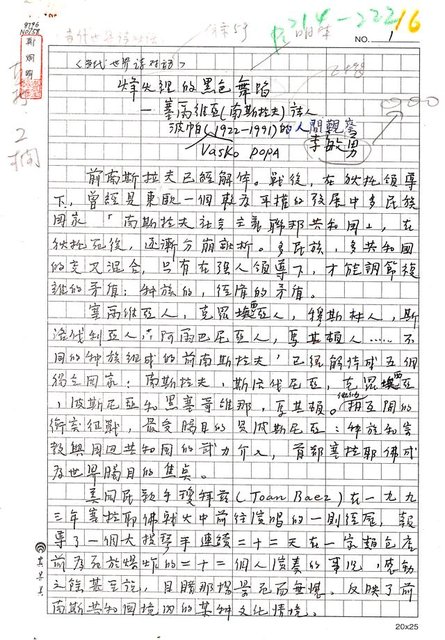 214-222
16
NO. 1
《當代世界詩對話》
烽火裡的黑色舞蹈
—塞爾維亞(南斯拉夫)詩人
波帕(1922-1991)的人間觀察
Vasko popa
李敏勇
前南斯拉夫已經解体。戰後，在狄托領導
下，曾經是東歐一個
國家「南斯拉夫社会主義聯邦共和国」，在
狄托死後，逐漸分崩離析。多民族，多共和国
的交叉混合，只有在强人領導下，才能調節複
雜的矛盾：種族的，
塞爾維亞人，克羅埃西亞人，穆斯林人，斯
洛伐利亞人，阿爾巴尼亞人，馬其頓人……不
同的种族組成的前南斯拉夫，已經解体成五個
獨立国家：南斯拉夫，斯洛伐尼亞，克羅埃西亞
，波斯尼亞和黑塞哥維那，馬其頓。他們相互間的
衝突征戰，最受矚目的是波斯尼亞：种族和宗
教與周四共和國的武力介入，首都塞拉耶佛成
為世界矚目的焦点。
美国民歌手瓊拜茲(Joan Baez)在一九九
三年塞拉耶佛戰火中前往演唱的一則經歷，報
導了一個大提琴手連續二十二天在一家麵包店
前為死於爆炸的二十二個人演奏的事況，感動
之餘甚至說，目睹那場景死而無憾。反映了前
南斯共和国境內的某种文化情境。
20x25